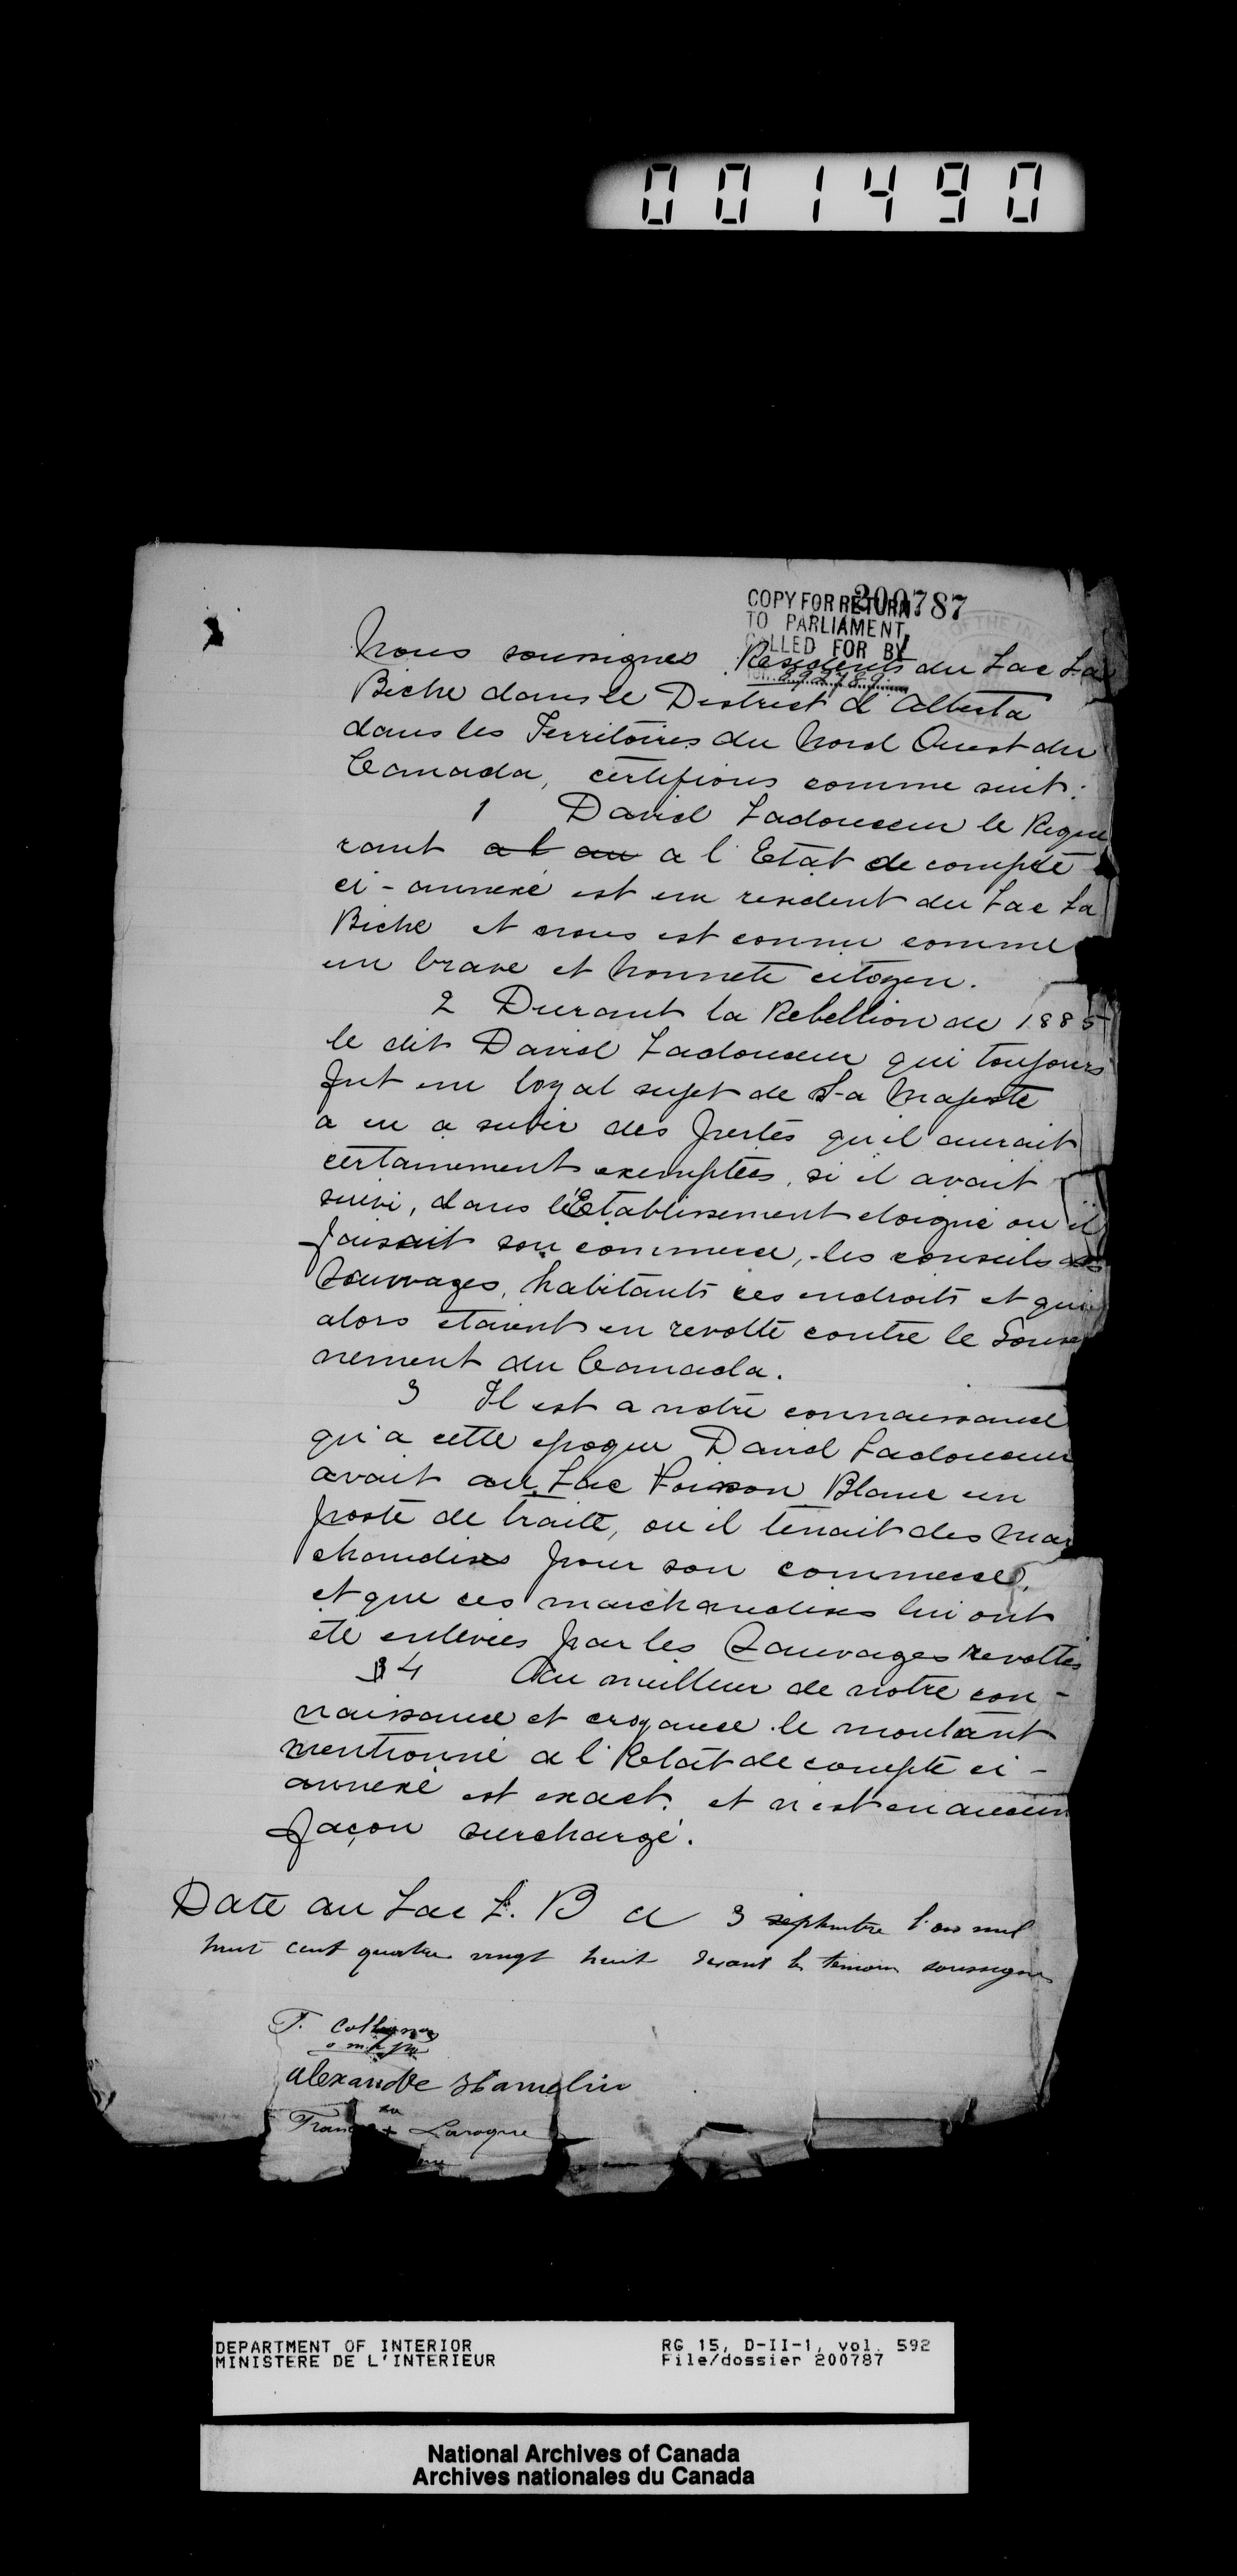 001490
200787
COPY FOR RETURN
TO PARLIAMENT,
CALLED FOR BY
Nous soussignes Residents du Lac La
Biche dans le District d'Alberta
dans les Territoires du Nord Ouest du
Canada, certifions comme suit:
1 David Ladouceur le Reque
rant a l au a l'Etat de compte
ci-annexé est un resident du Lac La
Biche et nous est connu comme
un brave et honnete citoyen.
2 Durant la Rebellion de 1885
le dit David Ladouceur qui toujours
fut un loyal sujet de Sa Majeste
a eu a subir des pertes qu'il aurait
certainement exemptées, si il avait
suivi, dans l'Etablissement eloigné ou il
faisait son commerce, les conseils des
Sauvages, habitants ces endroits et qui
alors étaient en revolte contre le Gouver
nement du Canada.
3 Il est a notre connaissance
qu'a cette epoque David Ladouceur
avait au Lac Poisson Blanc un
poste de traite, ou il tenait des mar
chandises pour son commerce,
et que ces marchandises lui ont
été enlevées par les Sauvages revoltés
4 Au meilleur de notre con-
naissance et croyance le montant
mentionné a l'Etat de compte ci-
annexé est exact. et n'est en aucun
façon surchargé.
Daté au Lac L. B a 3 septembre l'an mil
huit cent quatre vingt huit devant les temoins soussignes
T. Collignon
o m i
alexandre Hamelin
Francis x Laroque
DEPARTMENT OF INTERIOR RG 15, D-II-1, vol. 592
MINISTERE DE L'INTERIEUR File/dossier 200787
National Archives of Canada
Archives nationales du Canada